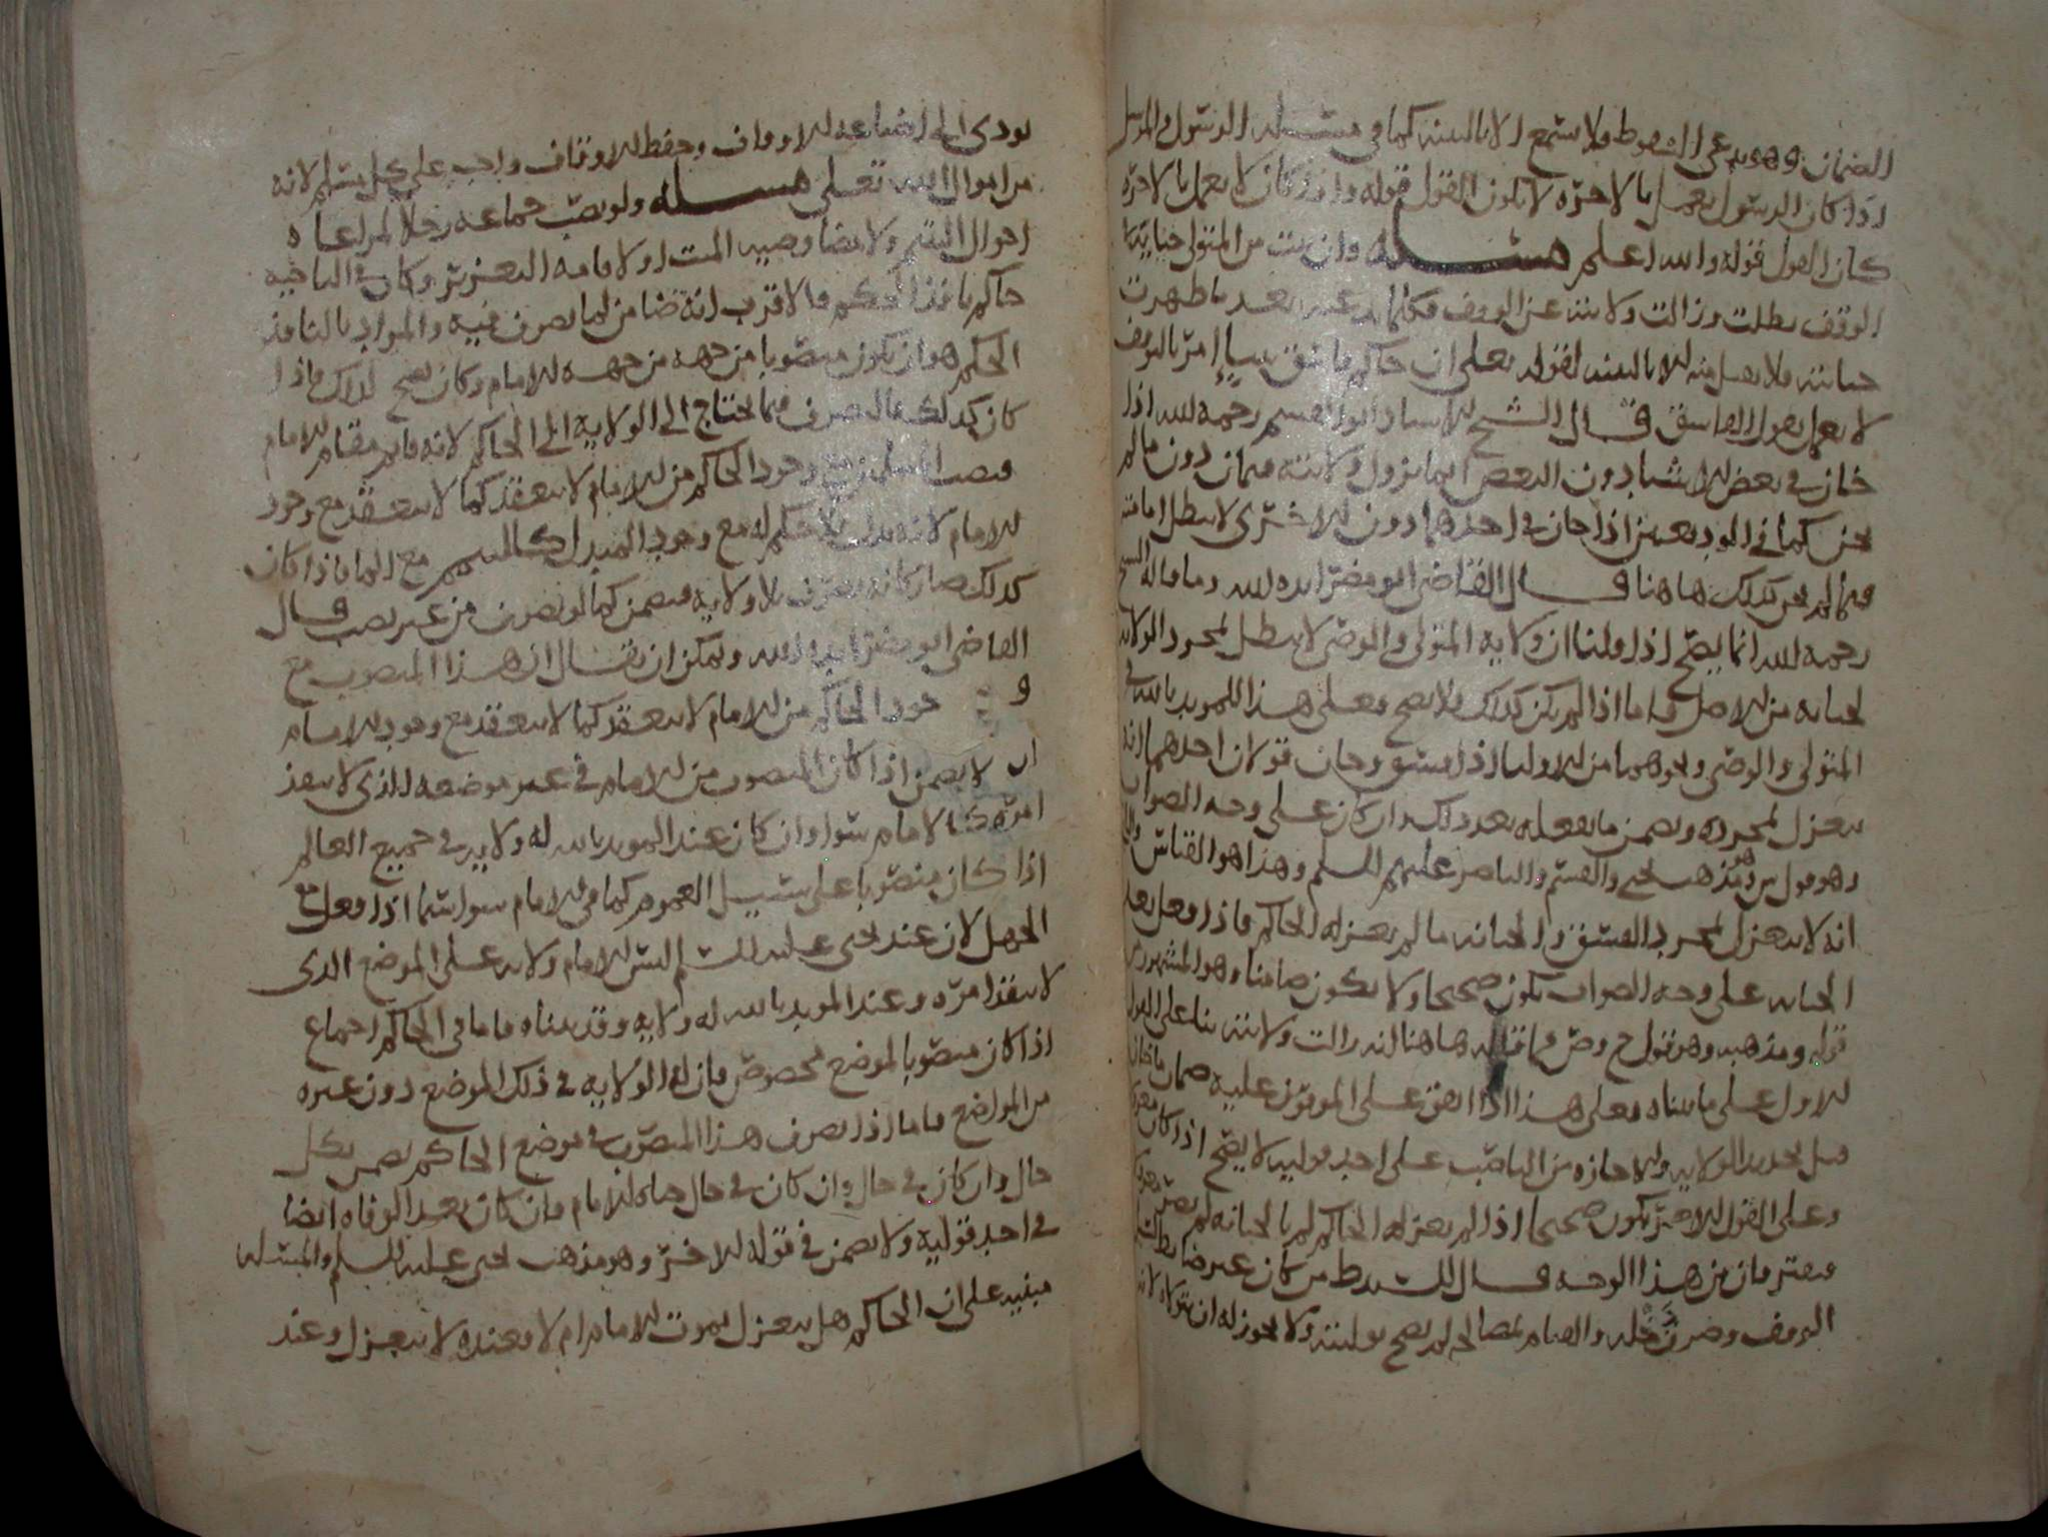 الضمان وهو يدعي السقوط فلا يسمع الا بالبينه كما في مسئله الرسول والمرسل
اذا كان الرسول يعمل بالاجره لا يكون القول قوله واذا كان لا يعمل بالاجره
كان القول قوله والله اعلم مسئله وان بنت من المتولي خيانته
الوقف بطلت وزالت ولايته عن الوقف فكلما يدعيه بعد ما ظهرت
خيانته فلا يقبل منه الا بالبينه لقوله تعلى ان جاكم فاسق بنبإ امر بالتوقف
لا يعمل بقول الفاسق قال الشيخ الاستاد ابو القسم رحمه الله اذا
خان في بعض الاشيا دون البعض انما يزول ولايته فيما خان دون ما لم
يخن كما في الوديعتين اذا خان في احدهما دون الاخرى لا يبطل امانته
فيما لم يخن كذلك هاهنا قال القاضي ابو مضر ايده الله وما قاله الشيخ
رحمه الله انما يصح اذا قلنا ان ولاية المتولي والوصي لا يبطل لمجرد الولايه
لخيانه من الاصل واما اذا لم يكن كذلك فلا يصح فعلى هذا للمويد بالله في
المتولي والوصي ونحوهما من الاوليا اذا فسق وخان قولان احدهما انه
ينعزل لمجرده ويضمن ما يفعله بعد ذلك وان كان على وجه الصواب
وهو قول س وهو مذهب يحيى والقسم والناصر عليهم السلم وهذا هو القياس
انه لا ينعزل لمجرد الفسق والخيانه ما لم يعزله الحاكم فاذا فعل بعد
الخيانه على وجه الصواب يكون صحيحا ولا يكون ضامنا وهو المشهور من
قوله ومذهبه وهو قول ح وص فما قاله هاهنا انه زالت ولايته بنا على القول
الاول على ما بيناه فعلى هذا اذا انفق على الموقوف عليه ضمان ما
قبل تجديد الولايه والاجازه من الناصب على احد قوليه لا يصح اذا كان
وعلى القول الاخر يكون صحيحا اذا لم يعزله الحاكم لم بالخيانه لم يصر
فيفترقان من هذا الوجه قال الشرط من كان غير ضابط
الوقف وصرف دخله والقيام لمصالحه لم يصح توليته ولا يجوز له ان يتولاه لانه
يودي الى اضاعه الاوقاف وحفظ الاوقاف واجب على كل مسلم لانه
من اموال الله تعلى مسله ولو نصب جماعه رجلا لمراعاه
احوال اليتيم ولامضا وصيه الميت او لاقامه التعزير وكان في الناحيه
حاكم نافذ الحكم فالاقرب انه ضامن لما يصرف فيه والمراد بالنافذ
الحكم هو ان يكون منصوبا من جهه من جهه الامام وكان يصح لذلك فاذا
كان كذلك فالتصرف فيما يحتاج الى الولايه الى الحاكم لانه قايم مقام الامام
فنصب المسلمين مع وجود الحاكم من الامام لا ينعقد كما لا ينعقد مع وجود
الامام لانه بدل فلا حكم له مع وجود المبدل كالتيمم مع الما فاذا كان
كذلك صار كانه يصرف بلا ولايه فيضمن كما لو تصرف من غير نصب قال
القاضي ابو مضر ايده الله ويمكن ان يقال ان هذا المنصوب مع
و جود الحاكم من الامام لا ينعقد كما لا ينعقد مع وجود الامام
لا يضمن اذا كان المنصوب من الامام في غير موضعه الذي لا ينفذ
امره كالامام سوا وان كان عند المويد بالله له ولايه في جميع العالم
اذا كان منصوبا على سبيل العموم كما في الامام سوا سيما اذا فعل
الجهل لان عند يحيى عليه السلم ليس للامام ولايه على الموضع الذي
لا ينفذ امره وعند المويد بالله له ولايه وقد بيناه فاما في الحاكم اجماع
اذا كان منصوبا لموضع مخصوص فان له الولايه في ذلك الموضع دون غيره
من المواضع فاما اذا تصرف هذا المنصوب في موضع الحاكم يضمن بكل
حال وان كان في حال وان كان في حال حياه الامام فان كان بعد الوفاه ايضا
في احد قوليه ولا يضمن في قوله الاخر وهو مذهب يحيى عليه السلم والمسئله
مبنيه على ان الحاكم هل ينعزل بموت الامام ام لا فعنده لا ينعزل وعند